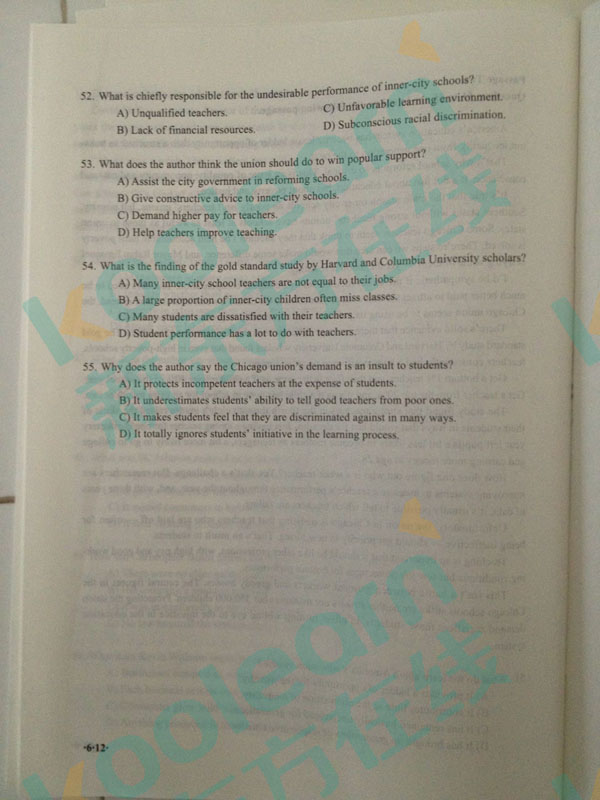 52. What is chiefly responsible for the undesirable performance of inner-city schools?
A) Unqualified teachers. C) Unfavorable learning environment.
B) Lack of financial resources. D) Subconscious racial discrimination.
53. What does the author think the union should do to win popular support?
A) Assist the city government in reforming schools.
B) Give constructive advice to inner-city schools.
C) Demand higher pay for teachers.
D) Help teachers improve teaching.
54. What is the finding of the gold standard study by Harvard and Columbia University scholars?
A) Many inner-city school teachers are not equal to their jobs.
B) A large proportion of inner-city children often miss classes.
C) Many students are dissatisfied with their teachers.
D) Student performance has a lot to do with teachers.
55. Why does the author say the Chicago union's demand is an insult to students?
A) It protects incompetent teachers at the expense of students.
B) It underestimates students' ability to tell good teachers from poor ones.
C) It makes students feel that they are discriminated against in many ways.
D) It totally ignores students' initiative in the learning process.
·6·12·
koolearn
新东方在线
koolearn
新东方在线